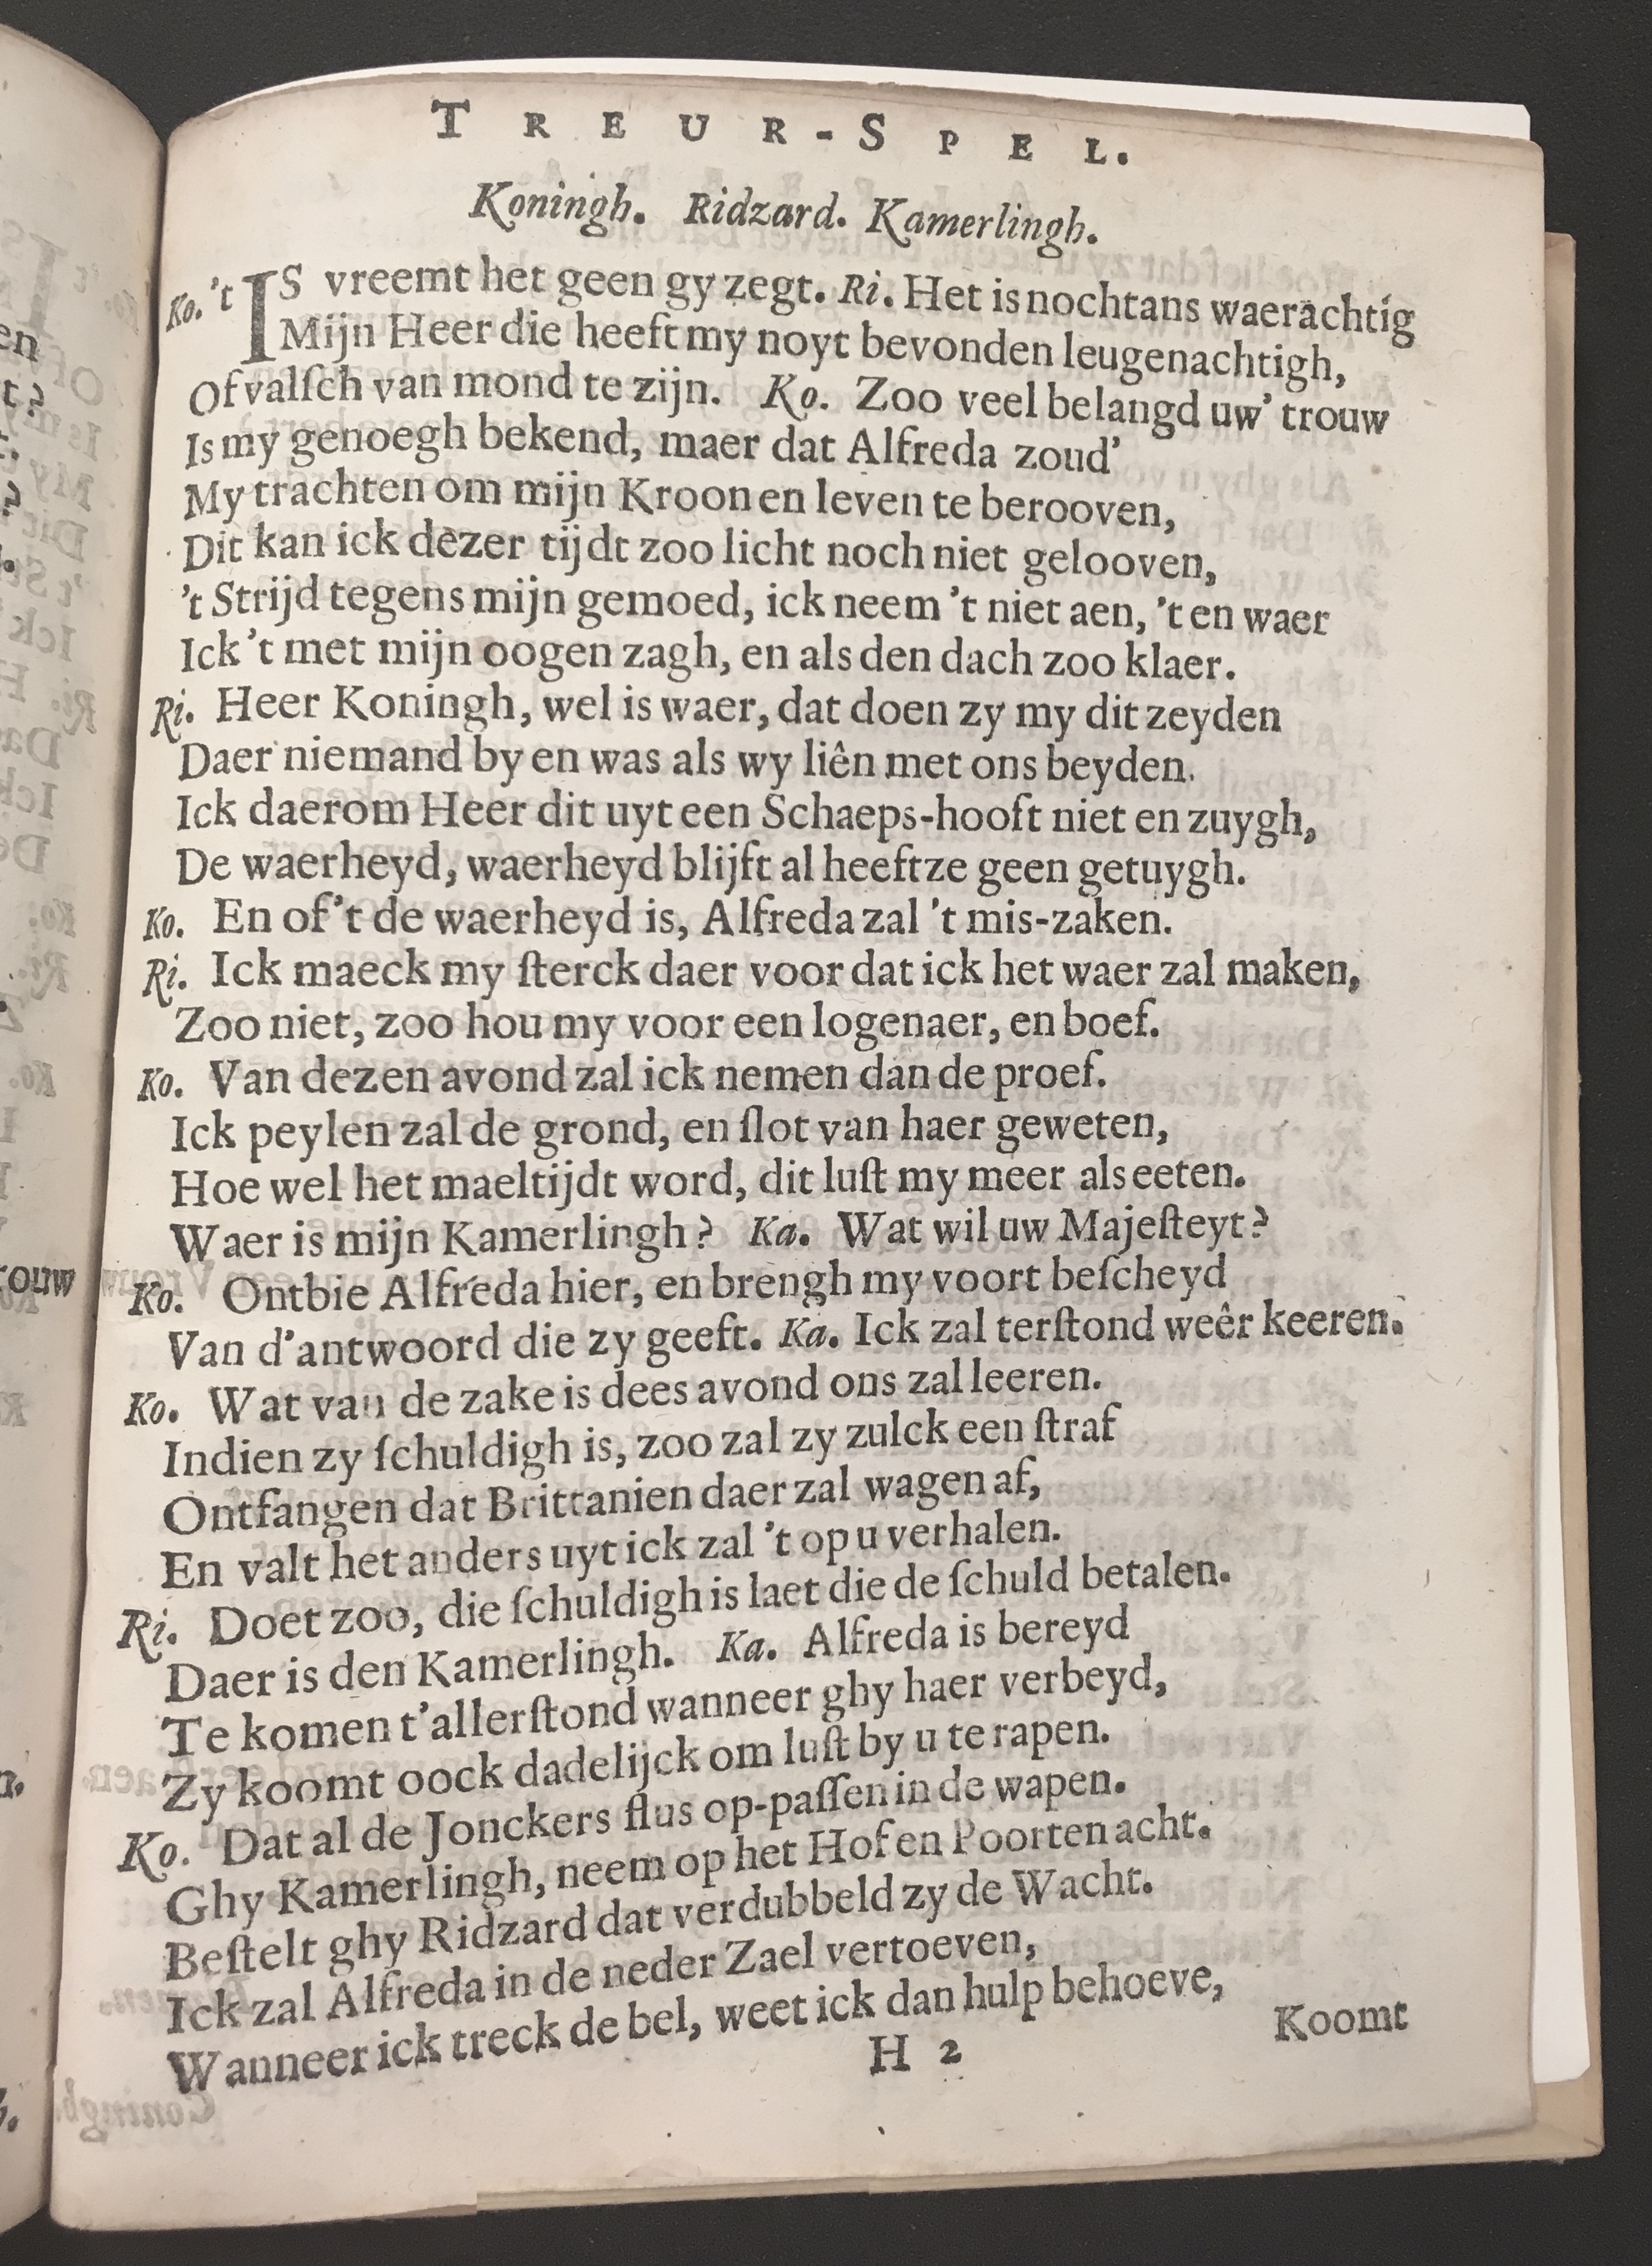 TREUR-SPEL.
Koningh. Ridzard. Kamerlingh.
Ko. 't IS vreemt het geen gy zegt. Ri. Het is nochtans waerachtig
Mijn Heer die heeft my noyt bevonden leugenachtigh,
Of valſch van mond te zijn. Ko. Zoo veel belangd uw' trouw
Is my genoegh bekend, maer dat Alfreda zoud'
My trachten om mijn Kroon en leven te berooven,
Dit kan ick dezer tijdt zoo licht noch niet gelooven,
't Strijd tegens mijn gemoed, ick neem 't niet aen, 't en waer
Ick 't met mijn oogen zagh, en als den dach zoo klaer.
Ri. Heer Koningh, wel is waer, dat doen zy my dit zeyden
Daer niemand by en was als wy liên met ons beyden.
Ick daerom Heer dit uyt een Schaeps-hooft niet en zuygh,
De waerheyd, waerheyd blijft al heeftze geen getuygh.
Ko. En of 't de waerheyd is, Alfreda zal 't mis-zaken.
Ri. Ick maeck my ſterck daer voor dat ick het waer zal maken,
Zoo niet, zoo hou my voor een logenaer, en boef.
Ko. Van dezen avond zal ick nemen dan de proef.
Ick peylen zal de grond, en ſlot van haer geweten,
Hoe wel het maeltijdt word, dit luſt my meer als eeten.
Waer is mijn Kamerlingh? Ka. Wat wil uw Majeſteyt?
Ko. Ontbie Alfreda hier, en brengh my voort beſcheyd
Van d'antwoord die zy geeft. Ka. Ick zal terſtond weêr keeren.
Ko. Wat van de zake is dees avond ons zal leeren.
Indien zy ſchuldigh is, zoo zal zy zulck een ſtraf
Ontfangen dat Brittanien daer zal wagen af,
En valt het anders uyt ick zal 't op u verhalen.
Ri. Doet zoo, die ſchuldigh is laet die de ſchuld betalen.
Daer is den Kamerlingh. Ka. Alfreda is bereyd
Te komen t'allerſtond wanneer ghy haer verbeyd,
Zy koomt oock dadelijck om luſt by u te rapen.
Ko. Dat al de Jonckers flus op-paſſen in de wapen.
Ghy Kamerlingh, neem op het Hof en Poorten acht.
Beſtelt ghy Ridzard dat verdubbeld zy de Wacht.
Ick zal Alfreda in de neder Zael vertoeven,
Wanneer ick treck de bel, weet ick dan hulp behoeve,
H 2
Koomt